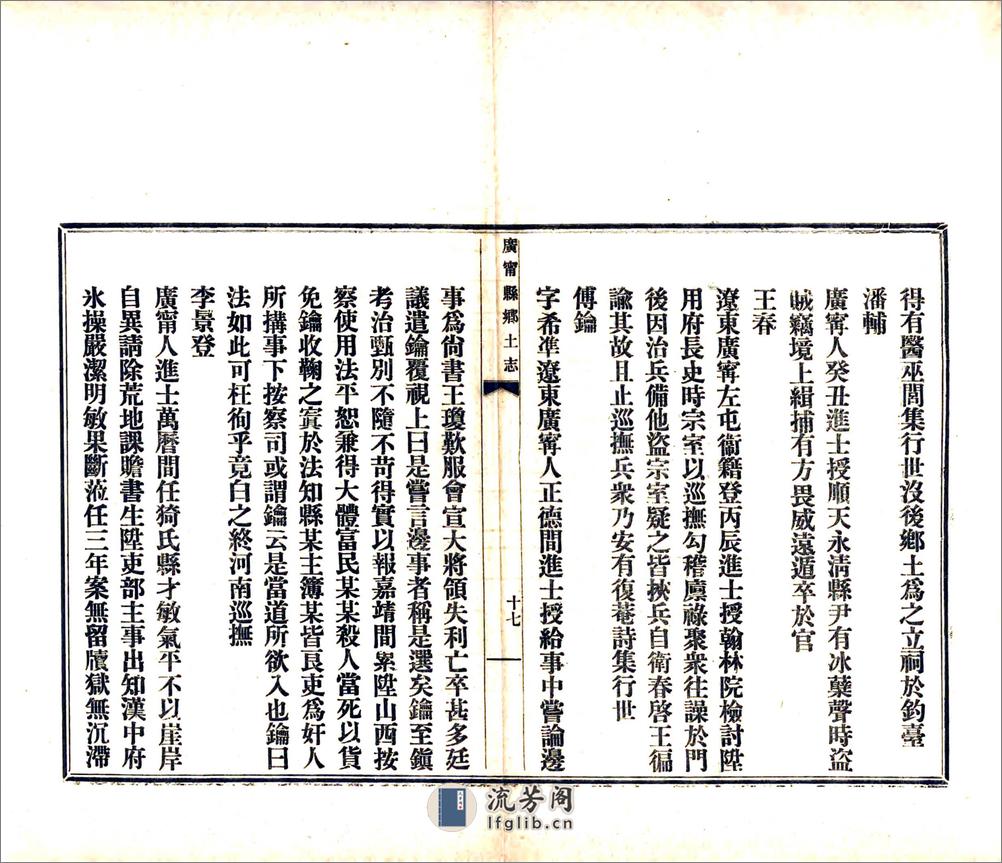 得有醫巫閭集行世沒後鄉土爲之立祠於釣臺
潘輔
廣甯人癸丑進士授順天永淸縣尹有冰蘗聲時盜
賊竊境上緝捕有方畏威遠遁卒於官
王春
遼東廣甯左屯衞籍登丙辰進士授翰林院檢討陞
用府長史時宗室以巡撫勾稽廩祿聚衆往譟於門
後因治兵備他盜宗室疑之皆挾兵自衛春啓王徧
諭其故且止巡撫兵衆乃安有復菴詩集行世
傅鑰
字希準遼東廣甯人正德間進士授給事中嘗論邊
廣甯縣鄉土志
十七
事爲尙書王瓊歎服會宣大將領失利亡卒甚多廷
議遣鑰覆視上曰是嘗言邊事者稱是選矣鑰至鎭
考治甄別不隨不苛得實以報嘉靖間累陞山西按
察使用法平恕兼得大體富民某某殺人當死以貨
免鑰收鞠之寘於法知縣某主簿某皆良吏爲奸人
所搆事下按察司或謂鑰云是當道所欲入也鑰曰
法如此可枉徇乎竟白之終河南巡撫
李景登
廣甯人進士萬曆間任猗氏縣才敏氣平不以崖岸
自異請除荒地課贍書生陞吏部主事出知漢中府
氷操嚴潔明敏果斷蒞任三年案無留牘獄無沉滯
流芳阁
lfglib.cn